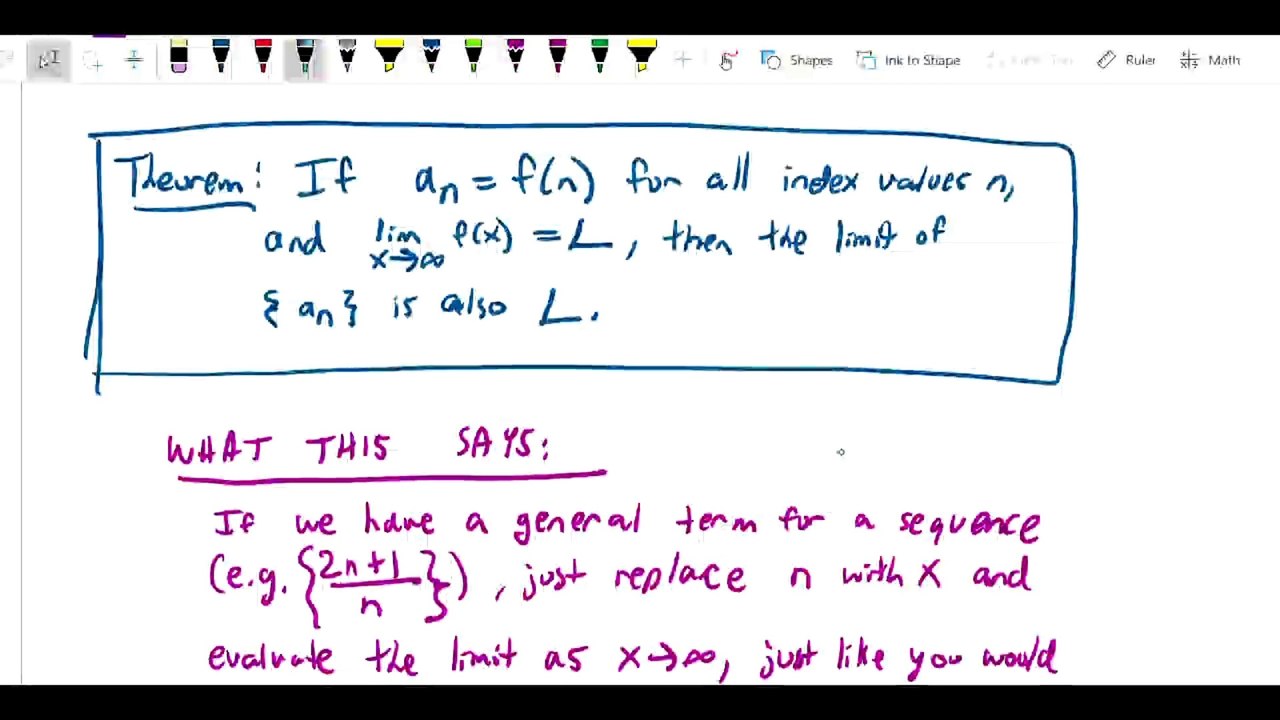 Shapes Ink to Shape Ruler Math
Theorem: If aₙ = f(n) for all index values n,
and lim x→∞ f(x) = L, then the limit of
{aₙ} is also L.
WHAT THIS SAYS:
If we have a general term for a sequence
(e.g. {2n+1/n}), just replace n with x and
evaluate the limit as x→∞, just like you would